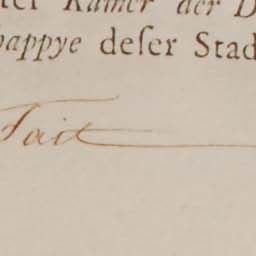 ter Kamer der D
happye deſer Stad
Fait